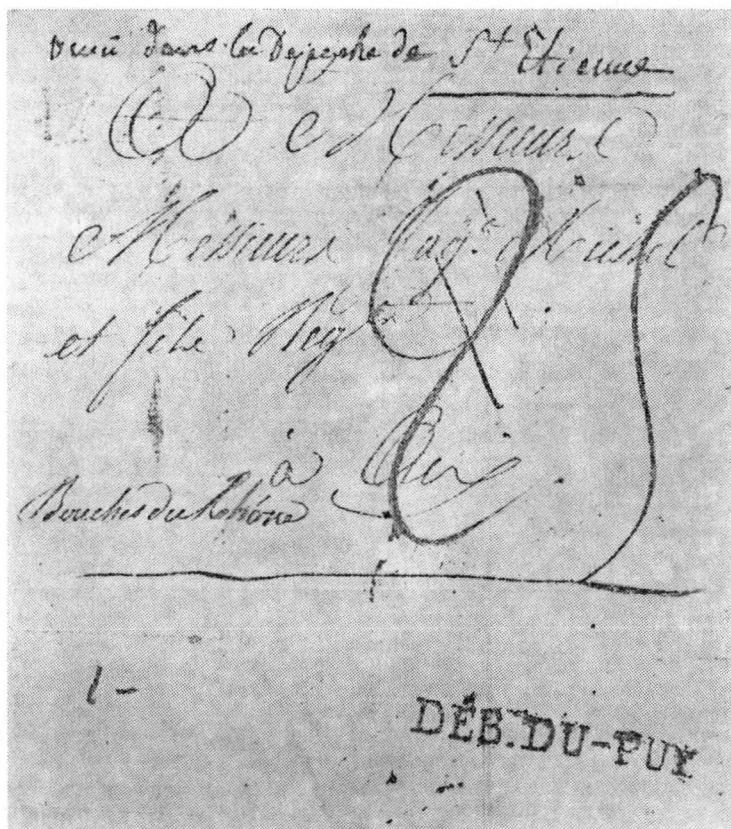 venu dans la Depeche de St Etienne
A Messieurs
Messieurs
et fils Neg
à Aix
Bouches du Rhône
1 -
DÉB.DU-PUY